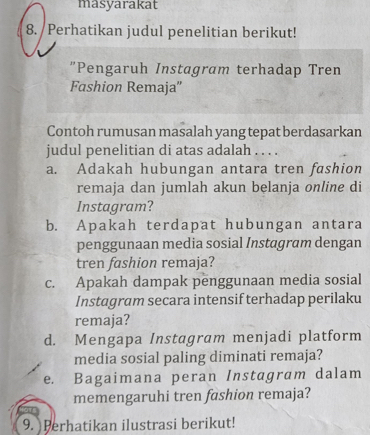 masyarakat
8. Perhatikan judul penelitian berikut!
"Pengaruh Instagram terhadap Tren
Fashion Remaja"
Contoh rumusan masalah yang tepat berdasarkan
judul penelitian di atas adalah . . . .
a. Adakah hubungan antara tren fashion
remaja dan jumlah akun belanja online di
Instagram?
b. Apakah terdapat hubungan antara
penggunaan media sosial Instagram dengan
tren fashion remaja?
c. Apakah dampak penggunaan media sosial
Instagram secara intensif terhadap perilaku
remaja?
d. Mengapa Instagram menjadi platform
media sosial paling diminati remaja?
e. Bagaimana peran Instagram dalam
memengaruhi tren fashion remaja?
HOTS
9. Perhatikan ilustrasi berikut!